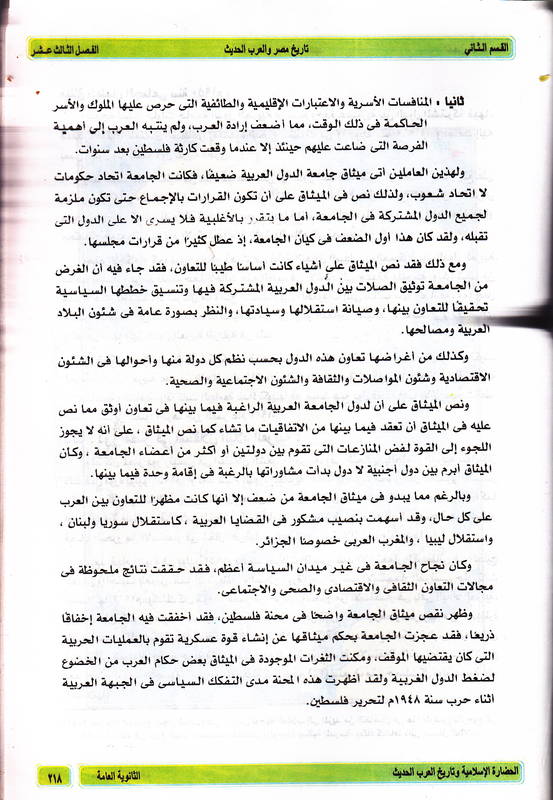 القسم الثاني
تاريخ مصر والعرب الحديث
الفصل الثالث عشر
ثانيا : المنافسات الأسرية والاعتبارات الإقليمية والطائفية التى حرص عليها الملوك والأسر
الحاكمة فى ذلك الوقت، مما أضعف إرادة العرب، ولم ينتبه العرب إلى أهمية
الفرصة التى ضاعت عليهم حينئذ إلا عندما وقعت كارثة فلسطين بعد سنوات.
ولهذين العاملين أتى ميثاق جامعة الدول العربية ضعيفًا، فكانت الجامعة اتحاد حكومات
لا اتحاد شعوب، ولذلك نص فى الميثاق على أن تكون القرارات بالإجماع حتى تكون ملزمة
لجميع الدول المشتركة فى الجامعة، أما ما يتقرر بالأغلبية فلا يسرى الا على الدول التى
تقبله، ولقد كان هذا أول الضعف فى كيان الجامعة، إذ عطل كثيرًا من قرارات مجلسها.
ومع ذلك فقد نص الميثاق على أشياء كانت أساسًا طيبًا للتعاون، فقد جاء فيه أن الغرض
من الجامعة توثيق الصلات بين الدول العربية المشتركة فيها وتنسيق خططها السياسية
تحقيقًا للتعاون بينها، وصيانة استقلالها وسيادتها، والنظر بصورة عامة فى شئون البلاد
العربية ومصالحها.
وكذلك من أغراضها تعاون هذه الدول بحسب نظم كل دولة منها وأحوالها فى الشئون
الاقتصادية وشئون المواصلات والثقافة والشئون الاجتماعية والصحية.
ونص الميثاق على أن لدول الجامعة العربية الراغبة فيما بينها فى تعاون أوثق مما نص
عليه فى الميثاق أن تعقد فيما بينها من الاتفاقيات ما تشاء كما نص الميثاق ، على أنه لا يجوز
اللجوء إلى القوة لفض المنازعات التى تقوم بين دولتين أو أكثر من أعضاء الجامعة ، وكان
الميثاق أبرم بين دول أجنبية لا دول بدأت مشاوراتها بالرغبة فى إقامة وحدة فيما بينها.
وبالرغم مما يبدو فى ميثاق الجامعة من ضعف إلا أنها كانت مظهرًا للتعاون بين العرب
على كل حال، وقد أسهمت بنصيب مشكور فى القضايا العربية ، كاستقلال سوريا ولبنان ،
واستقلال ليبيا ، والمغرب العربى خصوصًا الجزائر.
وكان نجاح الجامعة فى غير ميدان السياسة أعظم، فقد حققت نتائج ملحوظة فى
مجالات التعاون الثقافى والاقتصادى والصحى والاجتماعى.
وظهر نقص ميثاق الجامعة واضحًا فى محنة فلسطين، فقد أخفقت فيه الجامعة إخفاقًا
ذريعًا، فقد عجزت الجامعة بحكم ميثاقها عن إنشاء قوة عسكرية تقوم بالعمليات الحربية
التى كان يقتضيها الموقف، ومكنت الثغرات الموجودة فى الميثاق بعض حكام العرب من الخضوع
لضغط الدول الغربية ولقد أظهرت هذه المحنة مدى التفكك السياسى فى الجبهة العربية
أثناء حرب سنة ١٩٤٨م لتحرير فلسطين.
الحضارة الإسلامية وتاريخ العرب الحديث
الثانوية العامة
٢١٨